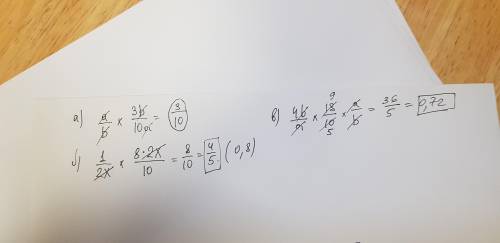 а) a/b × 3b/10a = 3/10
б) 1/2x × 8·2x/10 = 8/10 = 4/5 (0,8)
в) 4b/a × 18/10 9 5 × a/b = 36/5 = 0,72